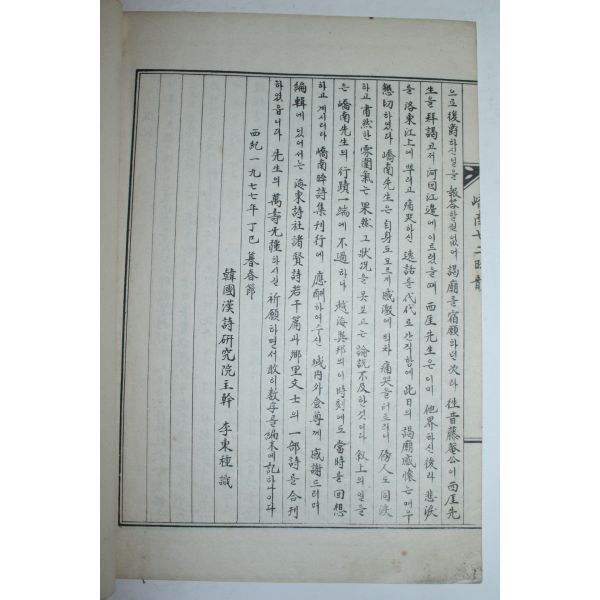 으로 復爵하신 일을 報答할 길 없어 謁廟를 宿願하던 次라 往昔 藤庵公이 西厓先
生을 拜謁고저 河回江邊에 이르렀을 때 西厓先生은 이미 他界하신 後라 悲淚
를 洛東江上에 뿌리고 痛哭하신 逸話를 代代로 간직함에 此日의 謁廟感懷는 매우
懇切하였다 嶠南先生은 自身도 모르게 感激에 벅차 痛哭을 터트리니 傍人도 同淚
하고 肅然한 雰圍氣는 果然 그 狀況을 못보고는 論說不及한 것이라 叙上의 일들
은 嶠南先生의 行蹟一端에 不過하나 越海異邦의 이 時刻에도 當時를 回想
하고 계시리라 嶠南晬詩集刊行에 應酬하여주신 域內外僉尊께 感謝드리며
編輯에 있어서는 海東詩社諸賢詩若干篇과 鄕里文士의 一部詩를 合刊
하였읍니다 先生의 萬壽无疆하시길 祈願하면서 敢히 數字를 編末에 記하나이다
西紀一九七七年丁巳暮春節
韓國漢詩硏究院主幹 李東種 識